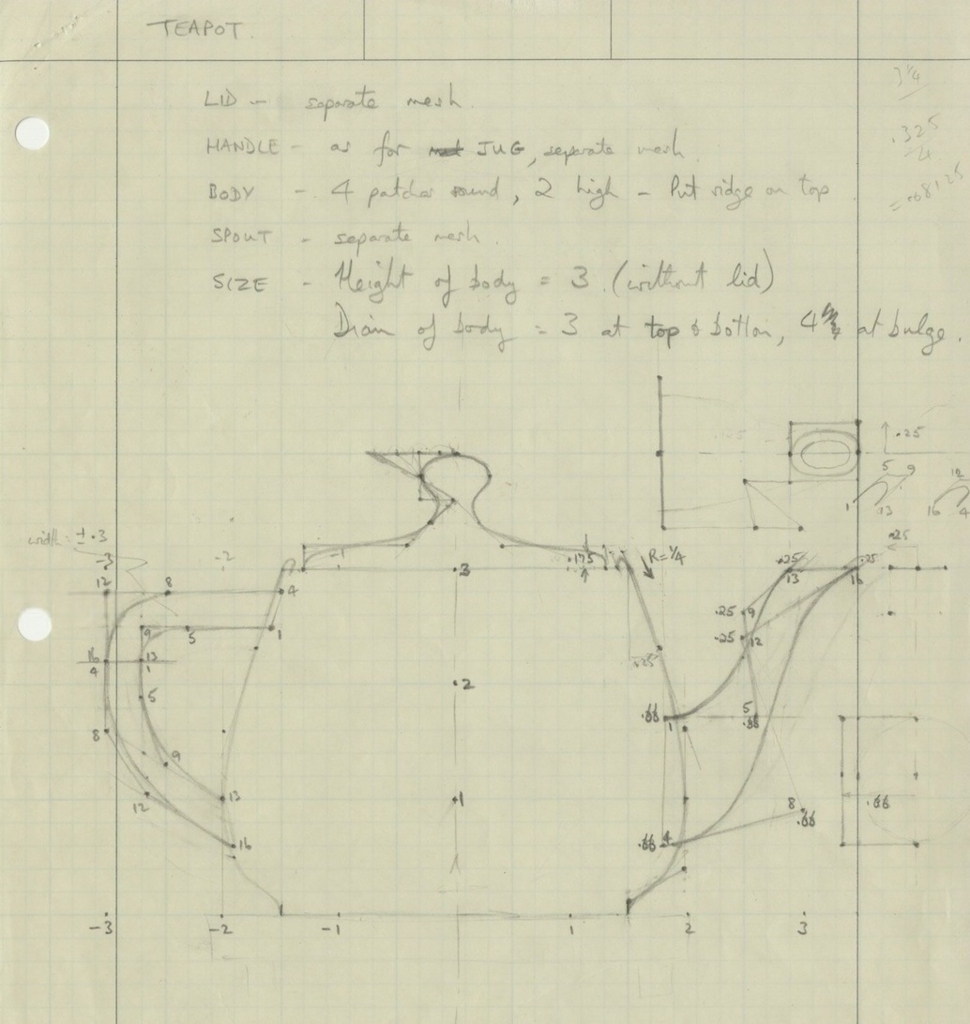 TEAPOT.
LID - separate mesh.
HANDLE - as for JUG, separate mesh.
BODY - 4 patches round, 2 high - Put ridge on top
SPOUT - separate mesh.
SIZE - Height of body = 3 (without lid)
Diam of body = 3 at top & bottom, 4 at bulge.
3 1/4
.325
4
= .08125
.25
5 9
1 13
12
16 4
.25
width = ± .3
-3 -2 -1
.175
R=1/4
3
12 8 4
9 5 1
16 13
4 1
5
8
9
12
13
16
2
1
.25
.25 13
.25 16
.25 9
.25 12
.66 1
5 .66
.66 4
8 .66
.66
-3 -2 -1 1 2 3